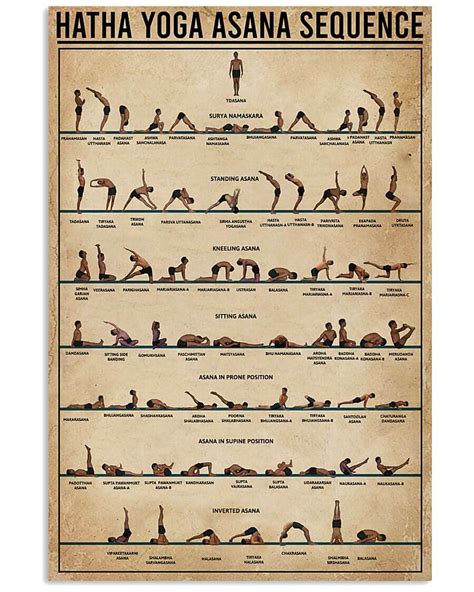 HATHA YOGA ASANA SEQUENCE
TDASANA
SURYA NAMASKARA
PRAHAMASAN HASTA UTTHANASH PADAHAST ASANA ASHWA SANCHALANASA PARVATASANA ASHTANGA NAMASKARA BHUJANGASANA PARVATASANA ASHWA SANCHALANASA PADAHAST ASANA HASTA UTTHANASH PRANAMASAN
STANDING ASANA
TADASANA TIRYAKA TADASANA TRIKON ASANA PARSVA UTTANASANA SIRHA ANGUSTHA YOGASANA HASTA UTTHANASN-A HASTA UTTHANASN-B PARIVRTTA TRIKONASANA EKAPADA PRANAMASANA DRUTA UTKTASANA
KNEELING ASANA
SIMHA GARJAN ASANA VEERASANA PARIGHASANA MARJARIASANA-A MARJARIASANA-B USTRASAN BALASANA TIRYAKA MARJARIASNA-A TIRYAKA MARJARIASNA-B TIRYAKA MARJARIASNA-C
SITTING ASANA
DANDASANA SITTING SIDE BANDING GOMUKHSANA PASCHIMITTAN ASANA MATSYASANA BHU NAMANASANA ARDHA MATSYENDRA ASANA BADDHA KONASANA-A BADDHA KONASANA-B MERUDANDA ASANA
ASANA IN PRONE POSITION
MAKARASANA BHUJANGASANA SHASHANKASANA ARDHA SHALABHASANA POORNA SHALABHASANA TIRYAKA BHUJANGASANA-A TIRYAKA BHUJANGASANA-B SANTOOLAN ASANA CHATURANGA DANDASANA
ASANA IN SUPINE POSITION
PADOTTHAN ASANA SUPTA PAWANMUKT ASANA-A SUPTA PAWANMUKT ASANA-B KANDHARASAN SUPTA VAJRASANA SUPTA BALASANA UDARAKARSAN ASANA NAUKASANA-A NAUKASANA-B
INVERTED ASANA
VIPAREETAKARNI ASANA SHALAMBHA SARVANGASANA HALASANA TIRYAK HALASANA CHAKRASANA SHALMBHA SIRSHASANA NIRALAMBA SIRSHASANA